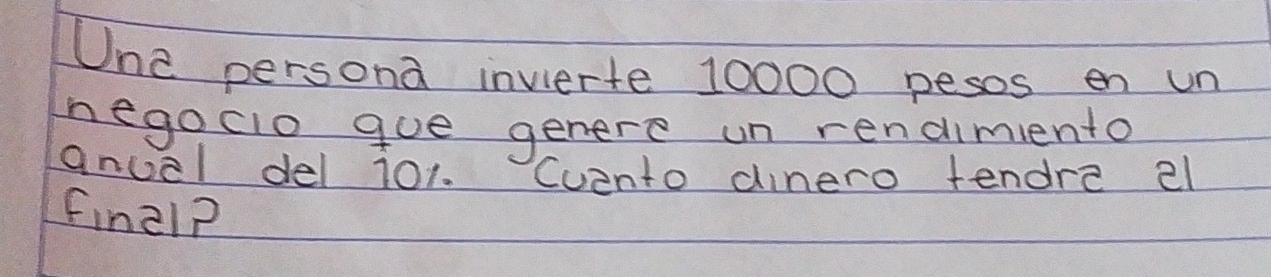 Una persona invierte 10000 pesos en un
negocio que genera un rendimiento
anual del 10%. Cuanto dinero tendra al
final?